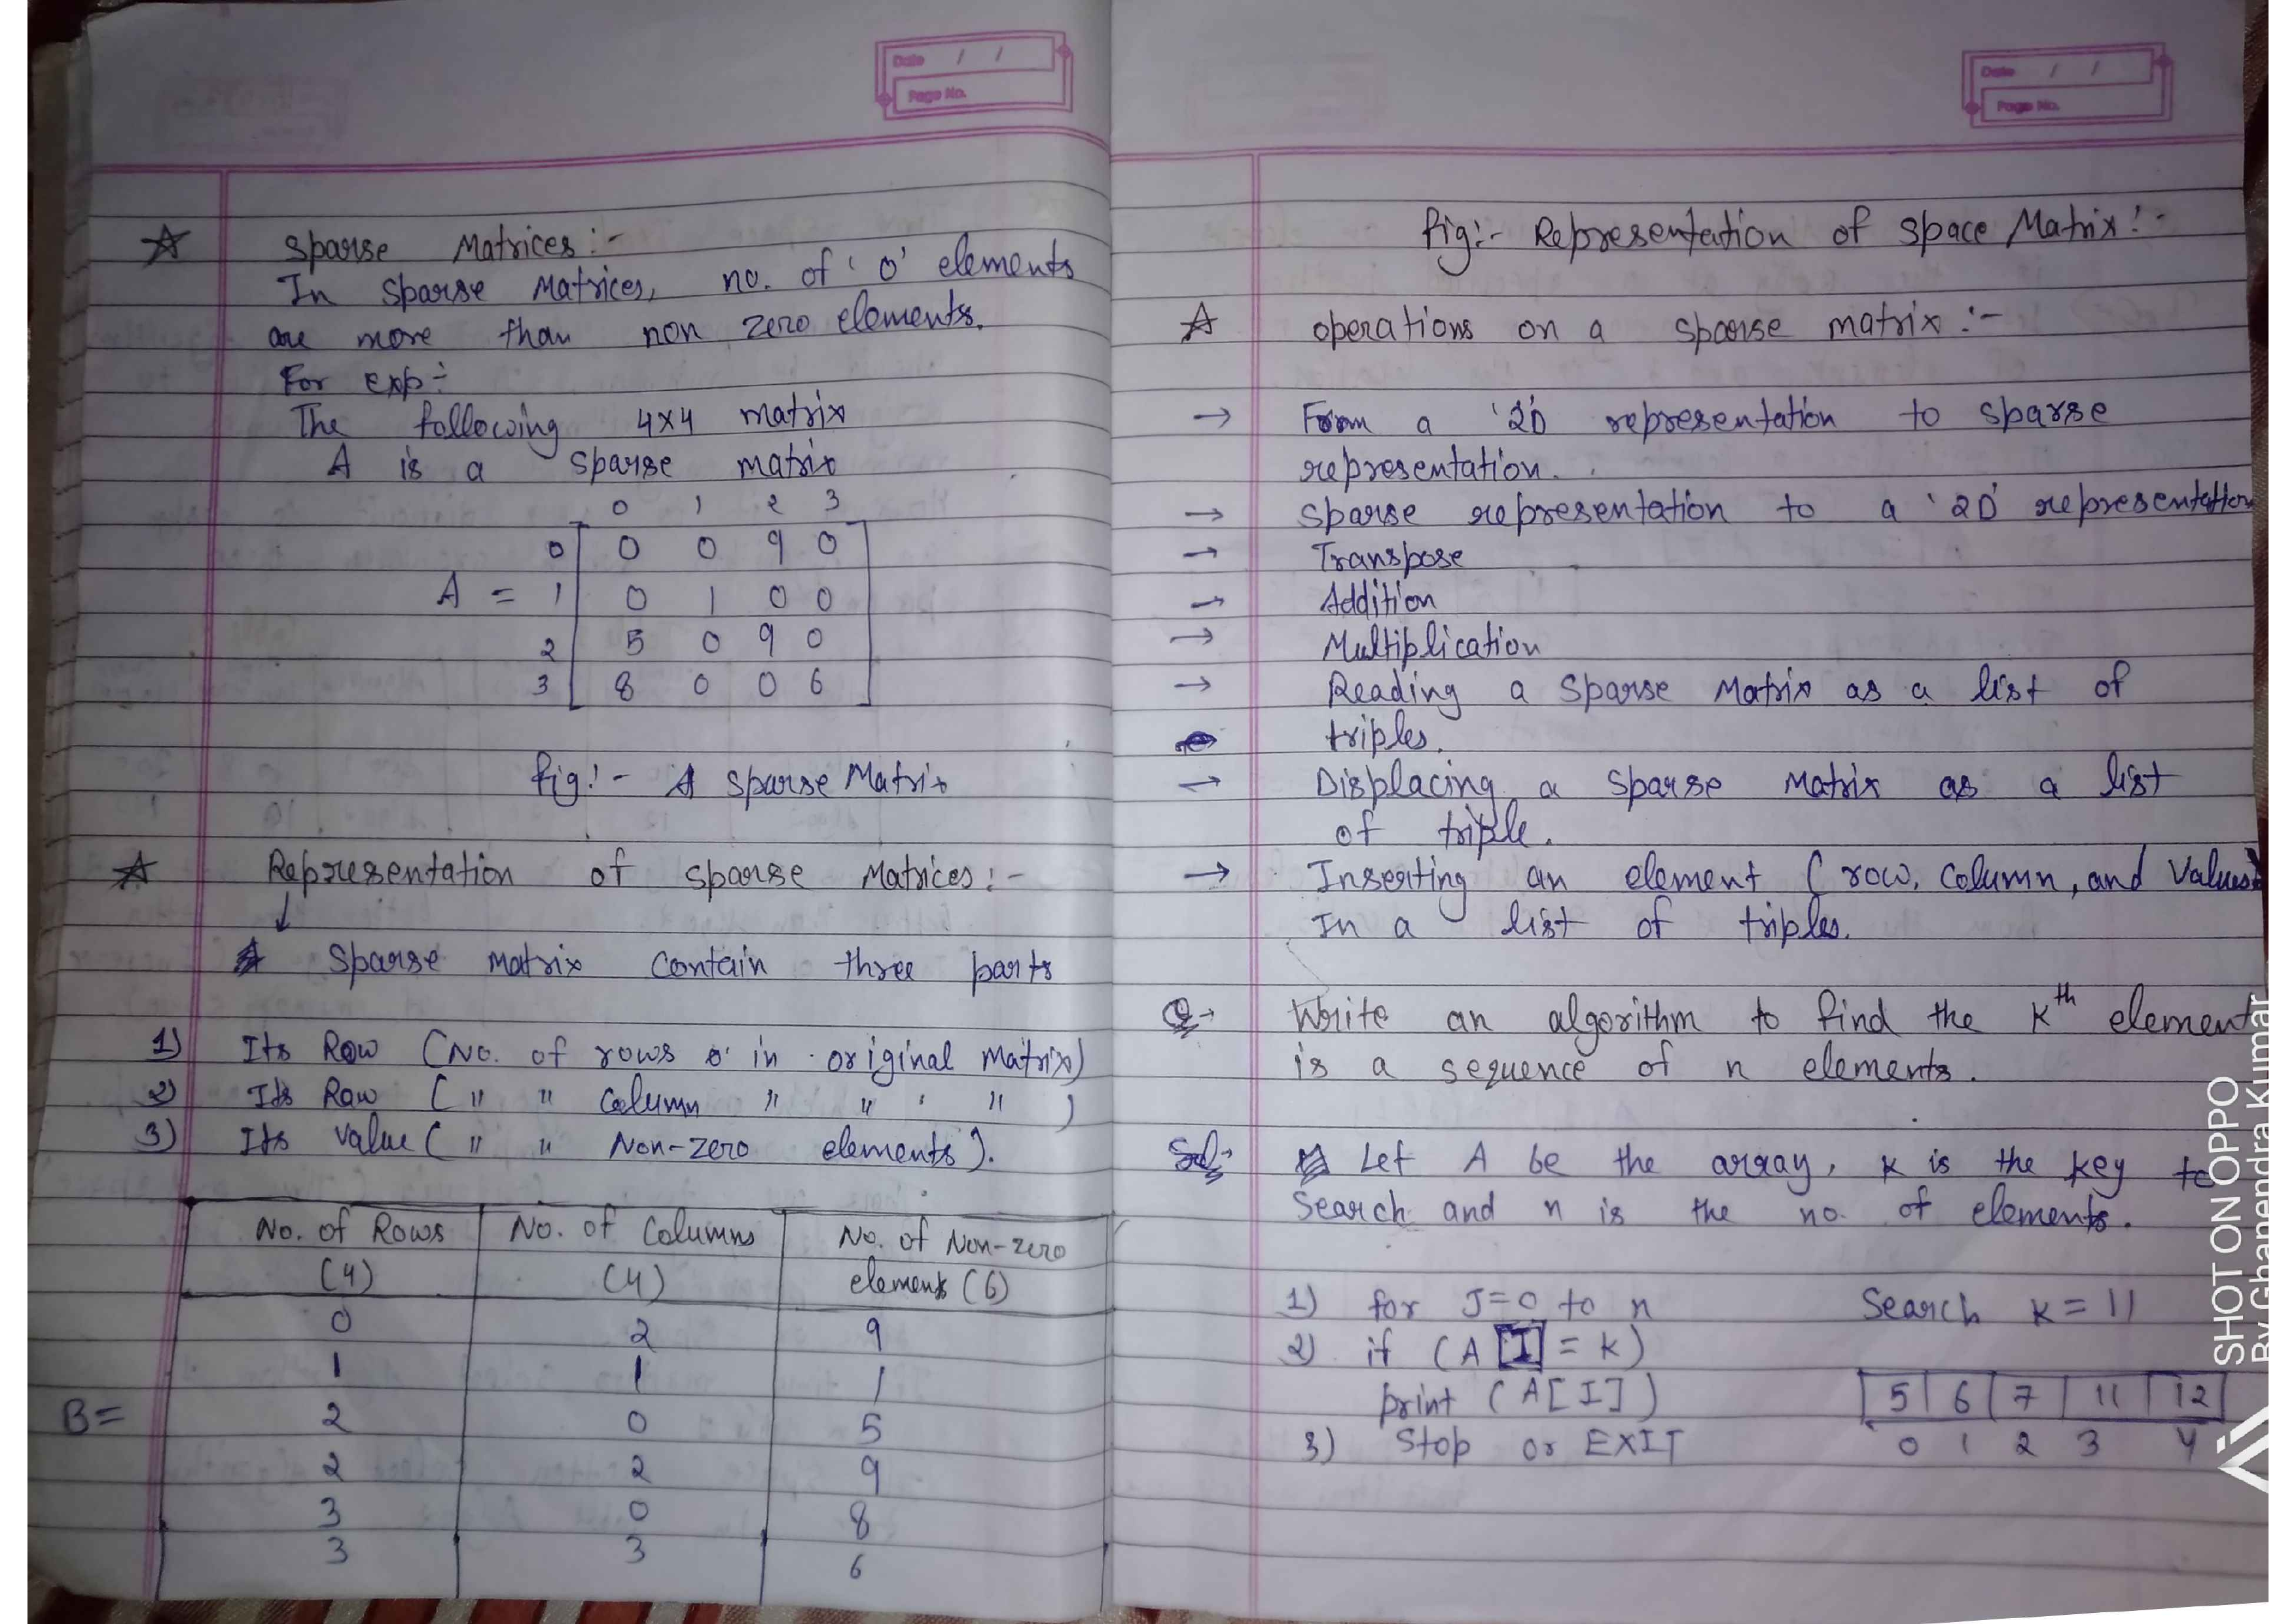 Date / /
Page No.
Sparse Matrices :-
In Sparse Matrices, no. of '0' elements
are more than non zero elements.
For exp:-
The following 4x4 matrix
A is a sparse matrix
0 1 2 3
0 0 0 9 0
A = 1 0 1 0 0
2 5 0 9 0
3 8 0 0 6
fig:- A Sparse Matrix
Representation of sparse Matrices :-
↓
Sparse matrix contain three parts
1) Its Row (No. of rows in original Matrix)
2) Its Raw ( " " Column " " " )
3) Its value ( " " Non-zero elements).
No. of Rows No. of Columns No. of Non-zero
(4) (4) elements (6)
0 2 9
1 1 1
B= 2 0 5
2 2 9
3 0 8
3 3 6
Date / /
Page No.
fig:- Representation of space Matrix:-
operations on a sparse matrix :-
→ From a '2D' representation to sparse
representation.
→ Sparse representation to a '2D' representation
→ Transpose
→ Addition
→ Multiplication
→ Reading a Sparse Matrix as a list of
triples.
→ Displacing a sparse Matrix as a list
of triple.
→ Inserting an element (row, column, and values)
In a list of triples.
Q→ Write an algorithm to find the Kth element
is a sequence of n elements.
Sol:- Let A be the array, K is the key to
Search and n is the no. of elements.
1) for J=0 to n Search K = 11
2) if (A[I] = K)
print (A[I]) 5 6 7 11 12
3) Stop or EXIT 0 1 2 3 4
SHOT ON OPPO
By Ghanendra Kumar